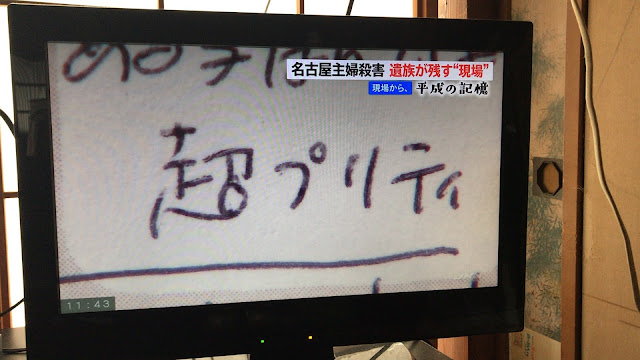 名古屋主婦殺害 遺族が残す“現場”
現場から、平成の記憶
超プリティ
11:43